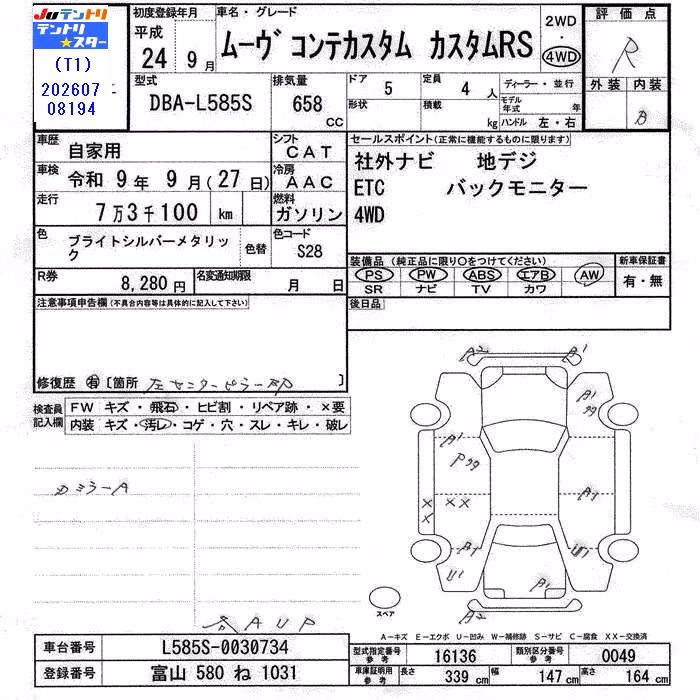 Juテントリ
テントリ
★スター
(T1)
202607
08194
初度登録年月
平成
24 9月
車名・グレード
ムーヴ コンテカスタム カスタムRS
2WD
・
4WD
評価点
R
外装 内装
B
型式
DBA-L585S
排気量
658 CC
ドア
5
形状
定員
4 人
積載
kg
ディーラー・並行
モデル年式 年
ハンドル 左・右
車歴
自家用
シフト
CAT
車検
令和 9年 9月(27日)
冷房
AAC
走行
7万3千100 km
燃料
ガソリン
色
ブライトシルバーメタリック
色替
色コード
S28
R券
8,280円
名変通知期限
月 日
セールスポイント(正常に機能するものに限ります)
社外ナビ 地デジ
ETC バックモニター
4WD
装備品(純正品に限り○をつけてください)
PS PW ABS エアB AW
SR ナビ TV カワ
新車保証書
有・無
後日品
注意事項申告欄(不具合内容等は具体的に記入して下さい)
修復歴 有 〔箇所 左センターピラー部 〕
検査員記入欄
FW キズ・飛石・ヒビ割・リペア跡・×要
内装 キズ・汚レ・コゲ・穴・スレ・キレ・破レ
A2 A1
A1
A1
P
××
××
A1
A1
U1
U1
A1
A2
スペア
ミラーA
AUP
A-キズ E-エクボ U-凹み W-補修跡 S-サビ C-腐食 XX-交換済
車台番号
L585S-0030734
登録番号
富山 580 ね 1031
型式指定番号 参考
16136
類別区分番号 参考
0049
車庫証明用 参考
長さ 339 cm 幅 147 cm 高さ 164 cm